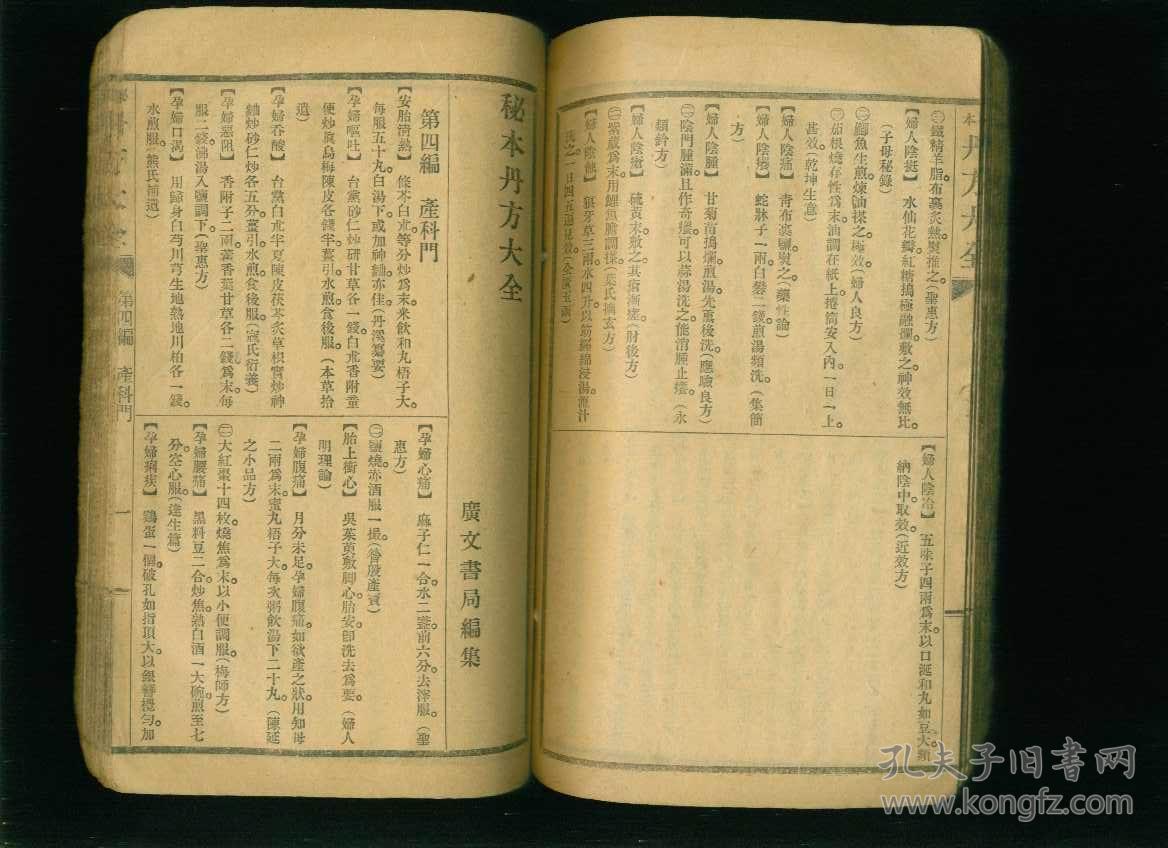 本丹方大全
㊁鐵精羊脂布裹炙熱熨推之。(聖惠方)
【婦人陰挺】 水仙花瓣紅糖搗極融爛敷之神效無比。
(子母秘錄)
㊁鯽魚生煎煉油搽之極效(婦人良方)
㊂茄根燒存性爲末油調在紙上捲筒安入內一日一上。
甚效。(乾坤生意)
【婦人陰痛】 青布裹鹽熨之(藥性論)
【婦人陰癢】 蛇牀子一兩白礬二錢煎湯頻洗。(集簡
方)
【婦人陰腫】 甘菊苗搗爛煎湯先薰後洗(應驗良方)
㊁陰門腫滿且作奇癢可以蒜湯洗之能消腫止癢(永
類鈐方)
【婦人陰瘡】 硫黃末敷之其瘡漸瘥(肘後方)
㊁紫葳爲末用鯉魚膽調搽(葉氏摘玄方)
【婦人陰蝕】 狼牙草三兩水四升以筯纏綿浸湯瀝汁
洗之一日四五遍見效(金匱玉函)
【婦人陰冷】 五味子四兩爲末以口涎和丸如豆大頻
納陰中。取效。(近效方)
秘本丹方大全
廣文書局編集
第四編 產科門
【安胎清熱】 條芩白朮等分炒爲末米飲和丸梧子大。
每服五十丸。白湯下。或加神麯亦佳(丹溪纂要)
【孕婦嘔吐】 台黨砂仁炒研甘草各一錢白朮香附童
便炒眞烏梅陳皮各錢半薑引水煎食後服。(本草拾
遺)
【孕婦吞酸】 台黨白朮半夏陳皮茯苓炙草枳實炒神
麯炒砂仁炒各五分。薑引水煎食後服(寇氏衍義)
【孕婦惡阻】 香附子二兩藿香葉甘草各二錢爲末。每
服二錢沸湯入鹽調下。(聖惠方)
【孕婦口渴】 用歸身白芍川芎生地熟地川柏各一錢。
水煎服。(熊氏補遺)
【孕婦心痛】 麻子仁一合水二盞煎六分。去滓服。(聖
惠方)
㊁鹽燒赤酒服一撮。(昝殷產寶)
【胎上衝心】 吳茱萸敷脚心胎安卽洗去爲要。(婦人
明理論)
【孕婦腹痛】 月分未足。孕婦腹痛如欲產之狀。用知母
二兩爲末蜜丸梧子大。每次粥飲湯下二十丸。(陳延
之小品方)
㊁大紅棗十四枚燒焦爲末以小便調服(梅師方)
【孕婦腰痛】 黑料豆二合炒焦熟白酒一大碗煎至七
分。空心服。(達生篇)
【孕婦痢疾】 鷄蛋一個。破孔如指頂大。以銀簪攪勻加
第四編 產科門
一
孔夫子旧书网
www.kongfz.com